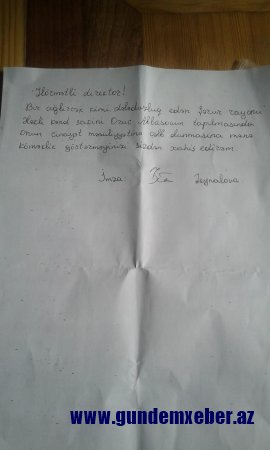 Hörmətli direktor!
Bir ağbirçək kimi dələduzluq edən Şərur rayonu
kənd sakini Oruc Abbasovun tapılmasında
onun cinayət məsuliyyətinə cəlb olunmasına mənə
köməklik göstərməyinizi sizdən xahiş edirəm.
İmza: Zeynalova
www.gundemxeber.az